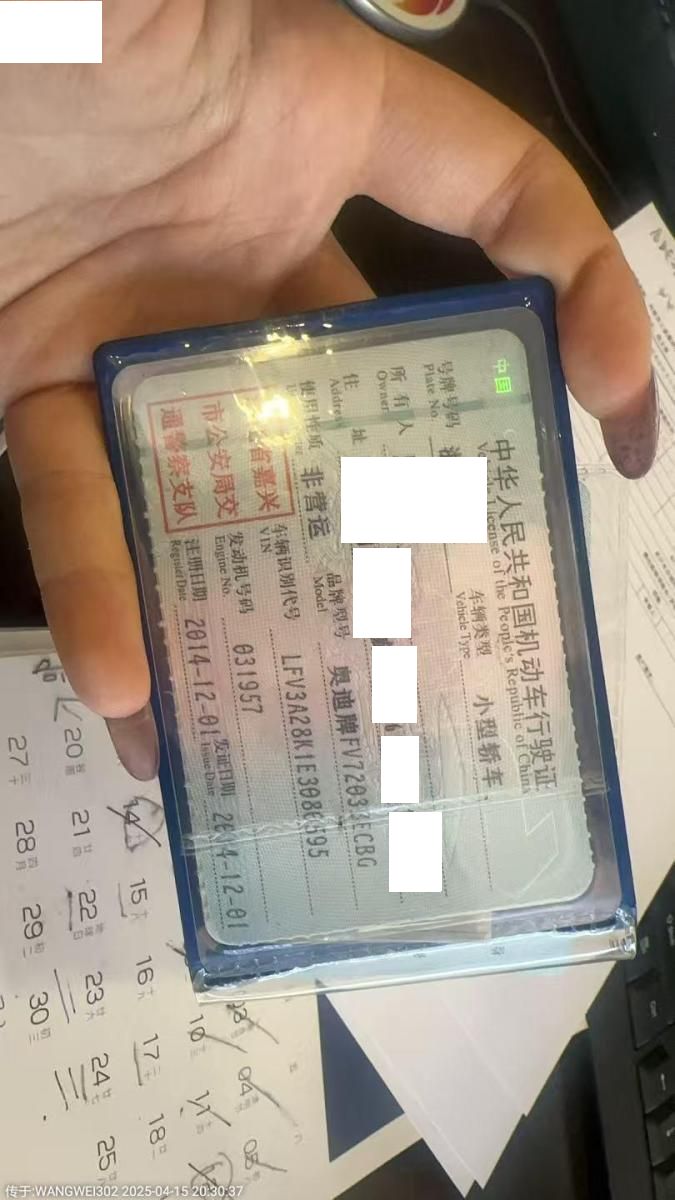 中国
中华人民共和国机动车行驶证
Vehicle License of the People's Republic of China
号牌号码
Plate No.
车辆类型
Vehicle Type
小型轿车
所有人
Owner
住址
Address
使用性质
非营运
品牌型号
Model
奥迪牌FV7203
ECBG
车辆识别代号
VIN
发动机号码
Engine No.
031957
注册日期
Register Date
2014-12-01
发证日期
Issue Date
2014-12-01
省嘉兴
市公安局交
通警察支队
03
04
05
10
11
14
15
16
17
18
20
21
22
23
24
25
27
28
29
30
传于:WANGWEI302 2025-04-15 20:30:37